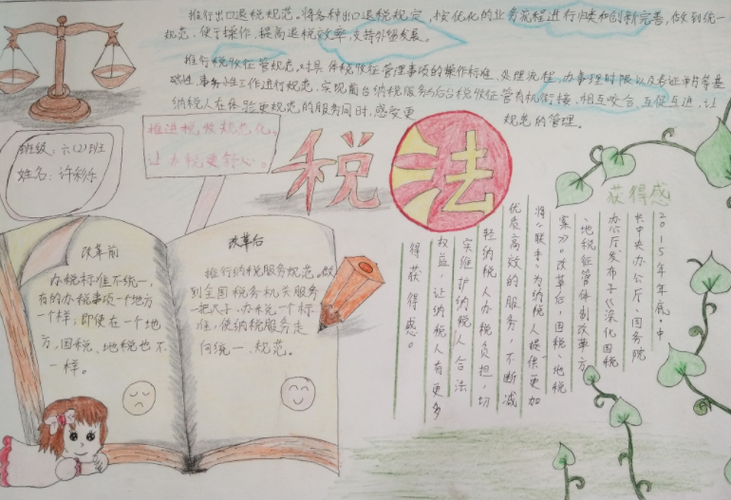 推行出口退税规范。将各种出口退税规定,按优化的业务流程进行归类和创新完善,做到统一
规范,便于操作,提高退税效率,支持外贸发展。
推行税收征管规范。对具体税收征管事项的操作标准、处理流程、办事理时限以及表证单书等基
础性、事务性工作进行规范,实现前台纳税服务与后台税收征管有机衔接、相互咬合、互促互进,让
纳税人在体验更规范的服务同时,感受更规范的管理。
班级:六(2)班
姓名:许彩乐
推进税收规范化。
让办税更舒心。
税法
改革前
办税标准不统一,
有的办税事项一个地方
一个样;即使在一个地
方,国税、地税也不
一样。
改革后
推行纳税服务规范。做
到全国税务机关服务
一把尺子、办税一个标
准,使纳税服务走
向统一、规范。
获得感
2015年年底,中
共中央办公厅、国务院
办公厅发布了《深化国税
、地税征管体制改革方
案》。改革后,国税、地税
将“联手”为纳税人提供更加
优质高效的服务,不断减
轻纳税人办税负担,切
实维护纳税人合法
权益,让纳税人有更多
得获得感。